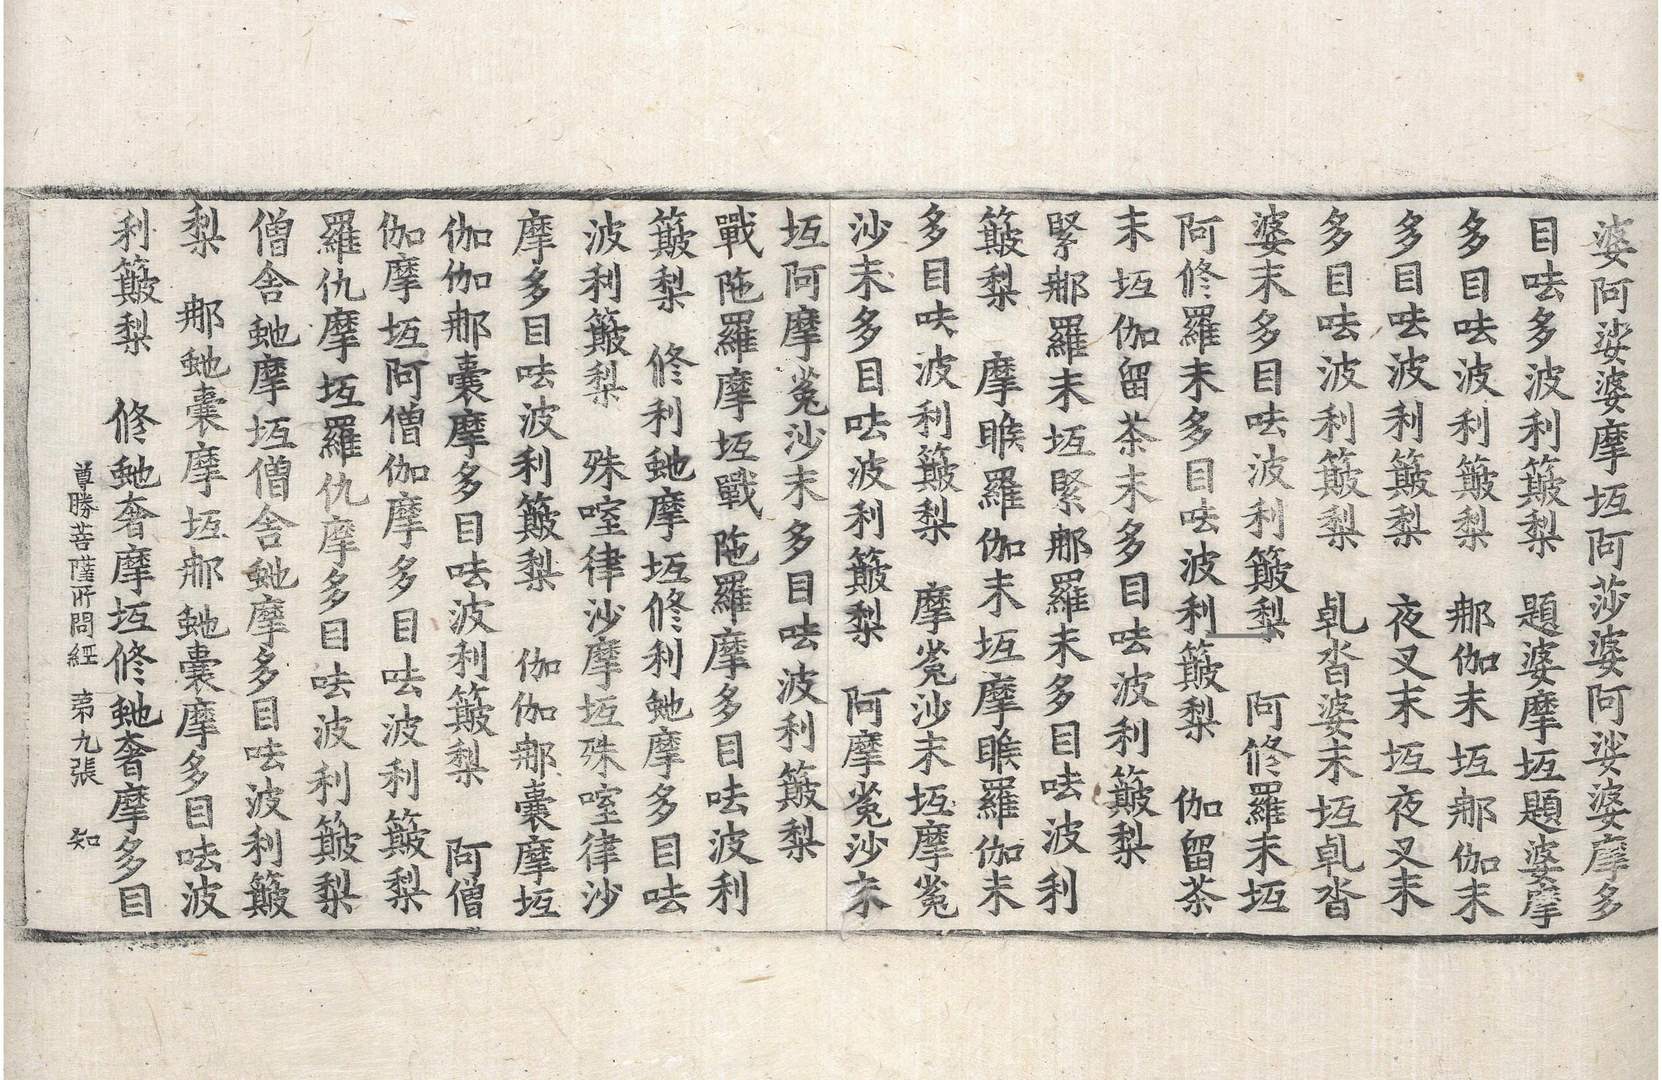 婆阿娑婆摩坘阿莎婆阿娑婆摩多
目呿多波利簸梨　題婆摩坘題婆摩
多目呿波利簸梨　那伽末坘那伽末
多目呿波利簸梨　夜叉末坘夜叉末
多目呿波利簸梨　乹沓婆末坘乹沓
婆末多目呿波利簸梨　阿修羅末坘
阿修羅末多目呿波利簸梨　伽留茶
末坘伽留茶末多目呿波利簸梨
緊那羅末坘緊那羅末多目呿波利
簸梨　摩睺羅伽末坘摩睺羅伽末
多目呿波利簸梨　摩㝹沙末坘摩㝹
沙末多目呿波利簸梨　阿摩㝹沙末
坘阿摩㝹沙末多目呿波利簸梨
戰陁羅摩坘戰陁羅摩多目呿波利
簸梨　修利虵摩坘修利虵摩多目呿
波利簸梨　殊㗌律沙摩坘殊㗌律沙
摩多目呿波利簸梨　伽伽那囊摩坘
伽伽那囊摩多目呿波利簸梨　阿僧
伽摩坘阿僧伽摩多目呿波利簸梨
羅仇摩坘羅仇摩多目呿波利簸梨
僧舍虵摩坘僧舍虵摩多目呿波利簸
梨　那虵囊摩坘那虵囊摩多目呿波
利簸梨　修虵奢摩坘修虵奢摩多目
尊勝菩薩所問經　苐九張　知